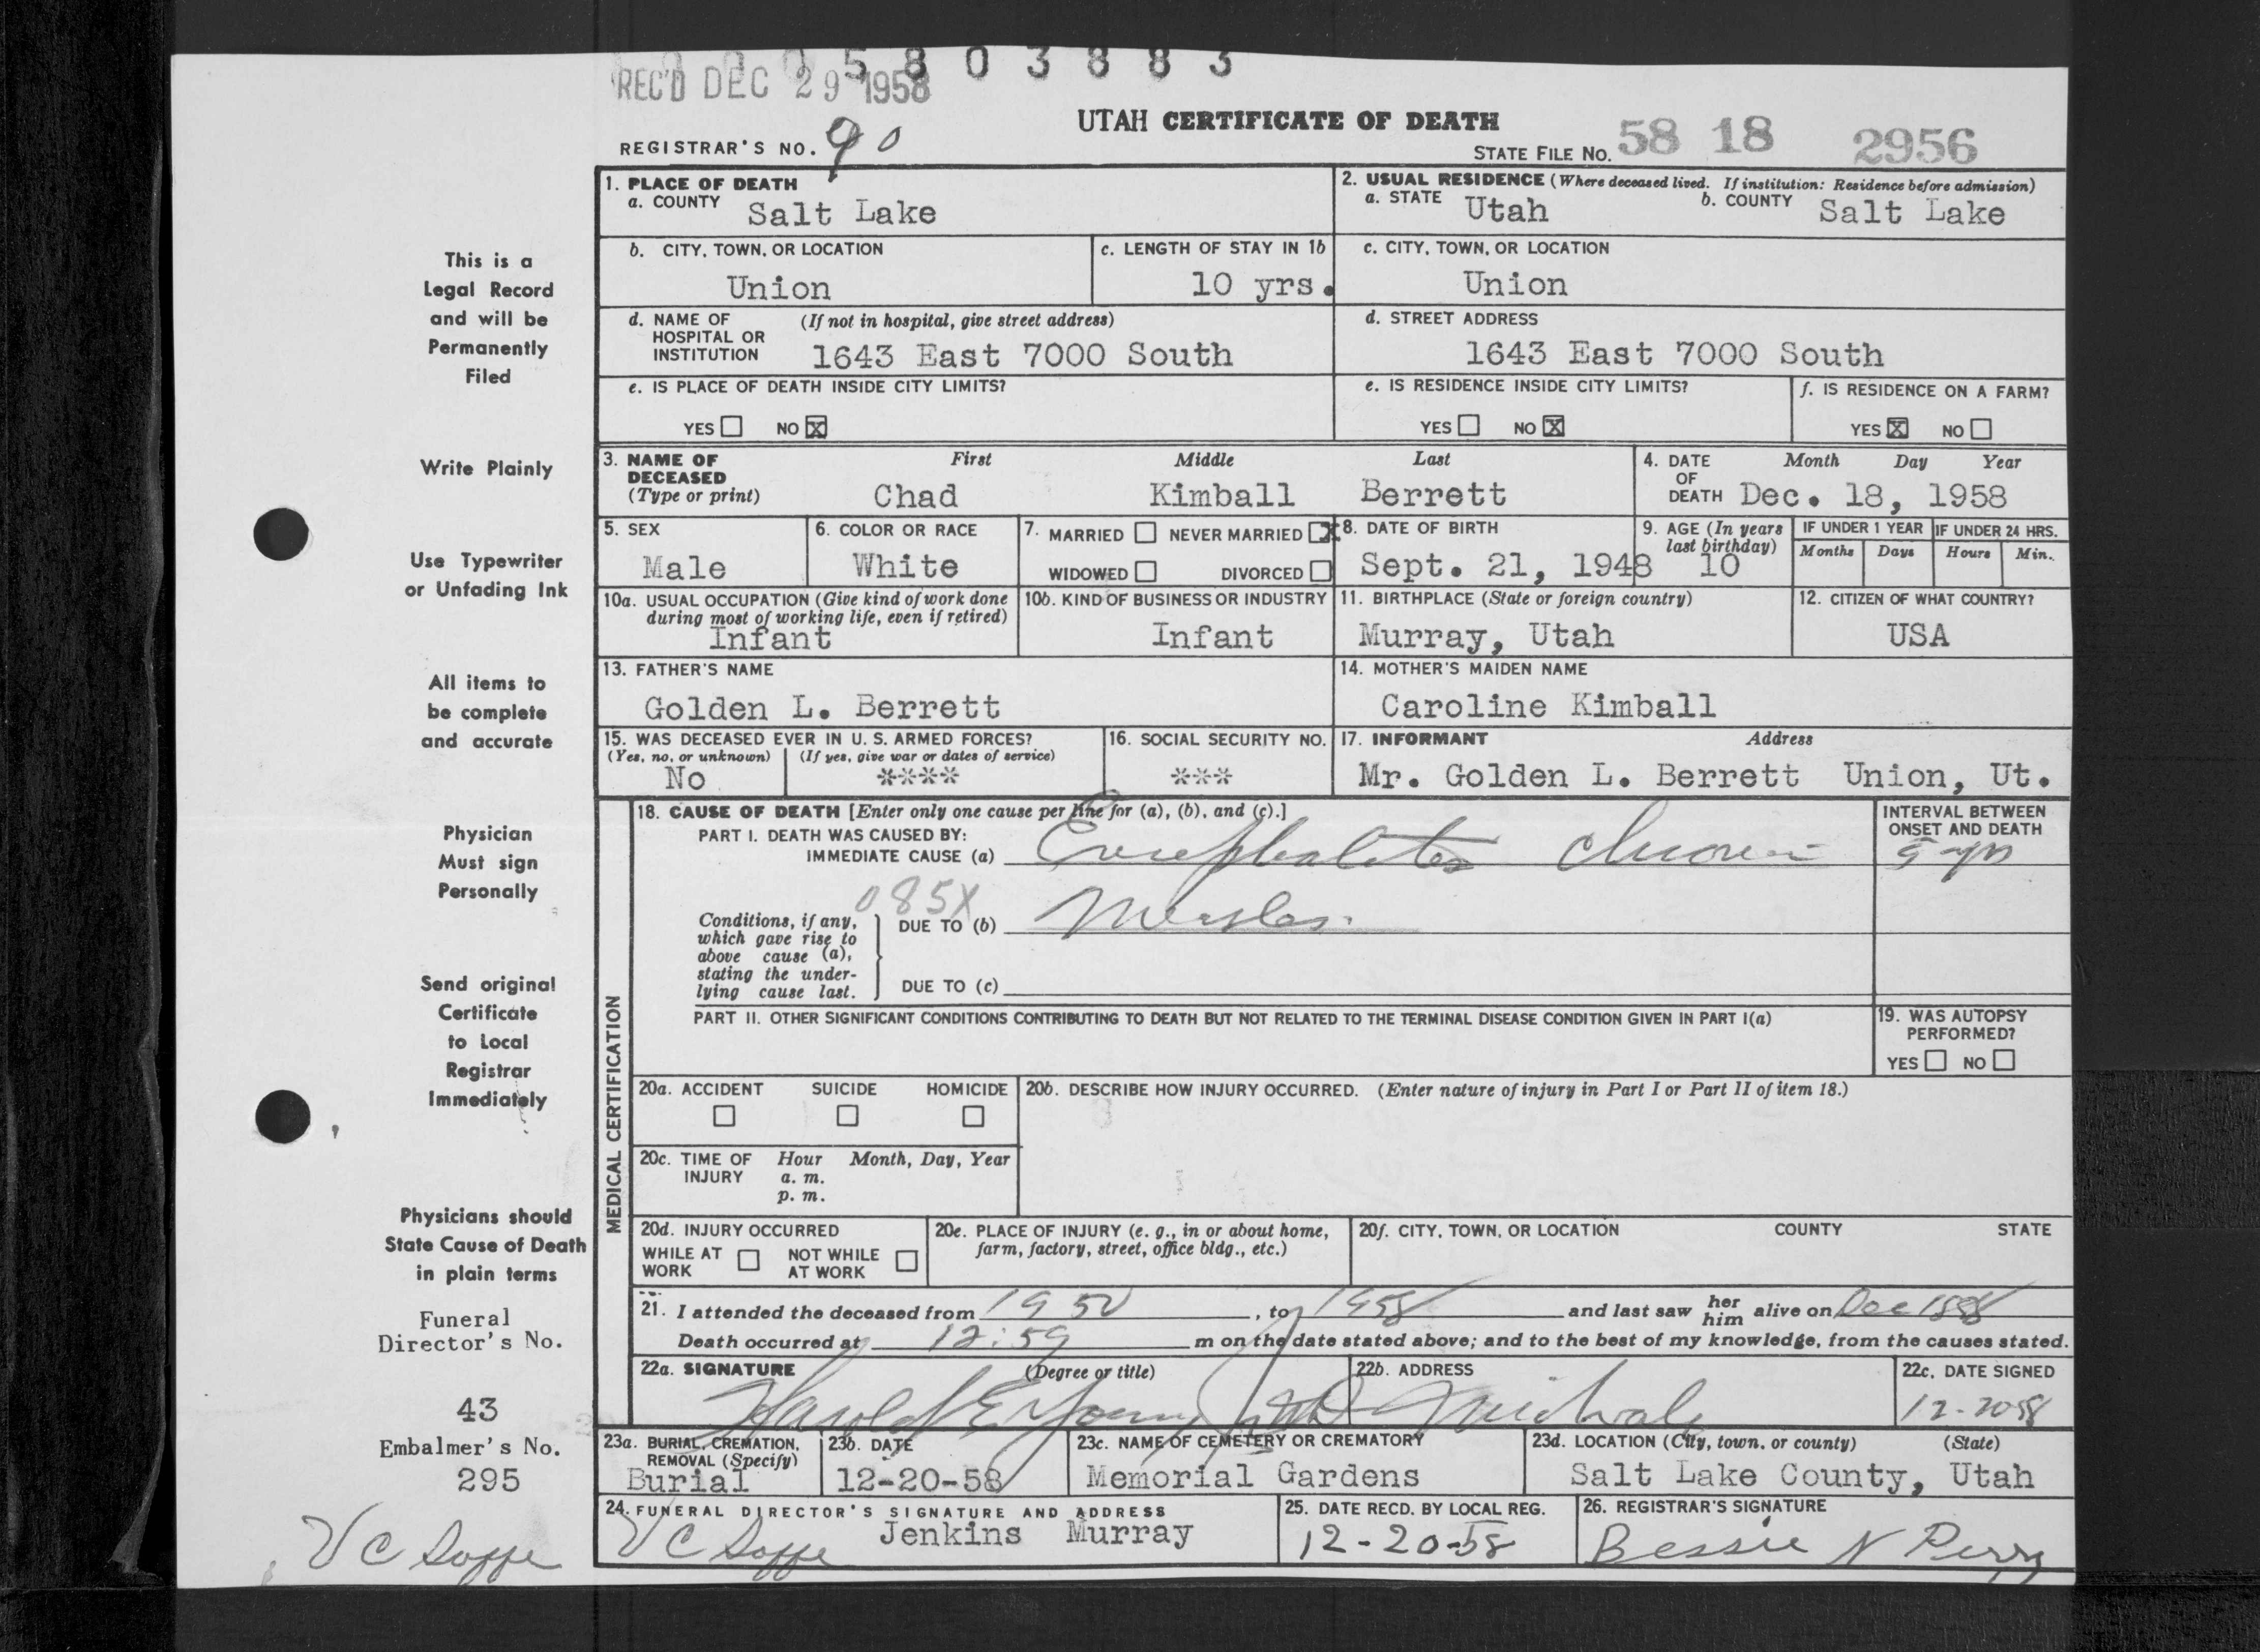 5 8 0 3 8 8 3
REC'D DEC 29 1958
UTAH CERTIFICATE OF DEATH
REGISTRAR'S NO. 90
STATE FILE NO. 58 18 2956
This is a
Legal Record
and will be
Permanently
Filed
Write Plainly
Use Typewriter
or Unfading Ink
All items to
be complete
and accurate
Physician
Must sign
Personally
Send original
Certificate
to Local
Registrar
Immediately
Physicians should
State Cause of Death
in plain terms
Funeral
Director's No.
43
Embalmer's No.
295
V C Soffe
1. PLACE OF DEATH
a. COUNTY Salt Lake
2. USUAL RESIDENCE (Where deceased lived. If institution: Residence before admission)
a. STATE Utah b. COUNTY Salt Lake
b. CITY, TOWN, OR LOCATION
Union
c. LENGTH OF STAY IN 1b
10 yrs.
c. CITY, TOWN, OR LOCATION
Union
d. NAME OF (If not in hospital, give street address)
HOSPITAL OR
INSTITUTION 1643 East 7000 South
d. STREET ADDRESS
1643 East 7000 South
e. IS PLACE OF DEATH INSIDE CITY LIMITS?
YES NO X
e. IS RESIDENCE INSIDE CITY LIMITS?
YES NO X
f. IS RESIDENCE ON A FARM?
YES X NO
3. NAME OF First Middle Last
DECEASED
(Type or print) Chad Kimball Berrett
4. DATE Month Day Year
OF
DEATH Dec. 18, 1958
5. SEX
Male
6. COLOR OR RACE
White
7. MARRIED NEVER MARRIED X
WIDOWED DIVORCED
8. DATE OF BIRTH
Sept. 21, 1948
9. AGE (In years
last birthday)
10
IF UNDER 1 YEAR IF UNDER 24 HRS.
Months Days Hours Min.
10a. USUAL OCCUPATION (Give kind of work done
during most of working life, even if retired)
Infant
10b. KIND OF BUSINESS OR INDUSTRY
Infant
11. BIRTHPLACE (State or foreign country)
Murray, Utah
12. CITIZEN OF WHAT COUNTRY?
USA
13. FATHER'S NAME
Golden L. Berrett
14. MOTHER'S MAIDEN NAME
Caroline Kimball
15. WAS DECEASED EVER IN U. S. ARMED FORCES?
(Yes, no, or unknown) (If yes, give war or dates of service)
No ****
16. SOCIAL SECURITY NO.
***
17. INFORMANT Address
Mr. Golden L. Berrett Union, Ut.
MEDICAL CERTIFICATION
18. CAUSE OF DEATH [Enter only one cause per line for (a), (b), and (c).]
PART I. DEATH WAS CAUSED BY:
IMMEDIATE CAUSE (a) Encephalitis chronic
INTERVAL BETWEEN
ONSET AND DEATH
085X
Conditions, if any,
which gave rise to
above cause (a),
stating the under-
lying cause last.
DUE TO (b) Measles.
DUE TO (c)
PART II. OTHER SIGNIFICANT CONDITIONS CONTRIBUTING TO DEATH BUT NOT RELATED TO THE TERMINAL DISEASE CONDITION GIVEN IN PART I(a)
19. WAS AUTOPSY
PERFORMED?
YES NO
20a. ACCIDENT SUICIDE HOMICIDE
20b. DESCRIBE HOW INJURY OCCURRED. (Enter nature of injury in Part I or Part II of item 18.)
20c. TIME OF Hour Month, Day, Year
INJURY a. m.
p. m.
20d. INJURY OCCURRED
WHILE AT NOT WHILE
WORK AT WORK
20e. PLACE OF INJURY (e. g., in or about home,
farm, factory, street, office bldg., etc.)
20f. CITY, TOWN, OR LOCATION COUNTY STATE
21. I attended the deceased from 1950, to 1958 and last saw her him alive on Dec 1958
Death occurred at 12:59 m on the date stated above; and to the best of my knowledge, from the causes stated.
22a. SIGNATURE (Degree or title)
Harold E Young MD
22b. ADDRESS
Midvale
22c. DATE SIGNED
12-20-58
23a. BURIAL, CREMATION,
REMOVAL (Specify)
Burial
23b. DATE
12-20-58
23c. NAME OF CEMETERY OR CREMATORY
Memorial Gardens
23d. LOCATION (City, town, or county) (State)
Salt Lake County, Utah
24. FUNERAL DIRECTOR'S SIGNATURE AND ADDRESS
V C Soffe Jenkins Murray
25. DATE RECD. BY LOCAL REG.
12-20-58
26. REGISTRAR'S SIGNATURE
Bessie N Perry